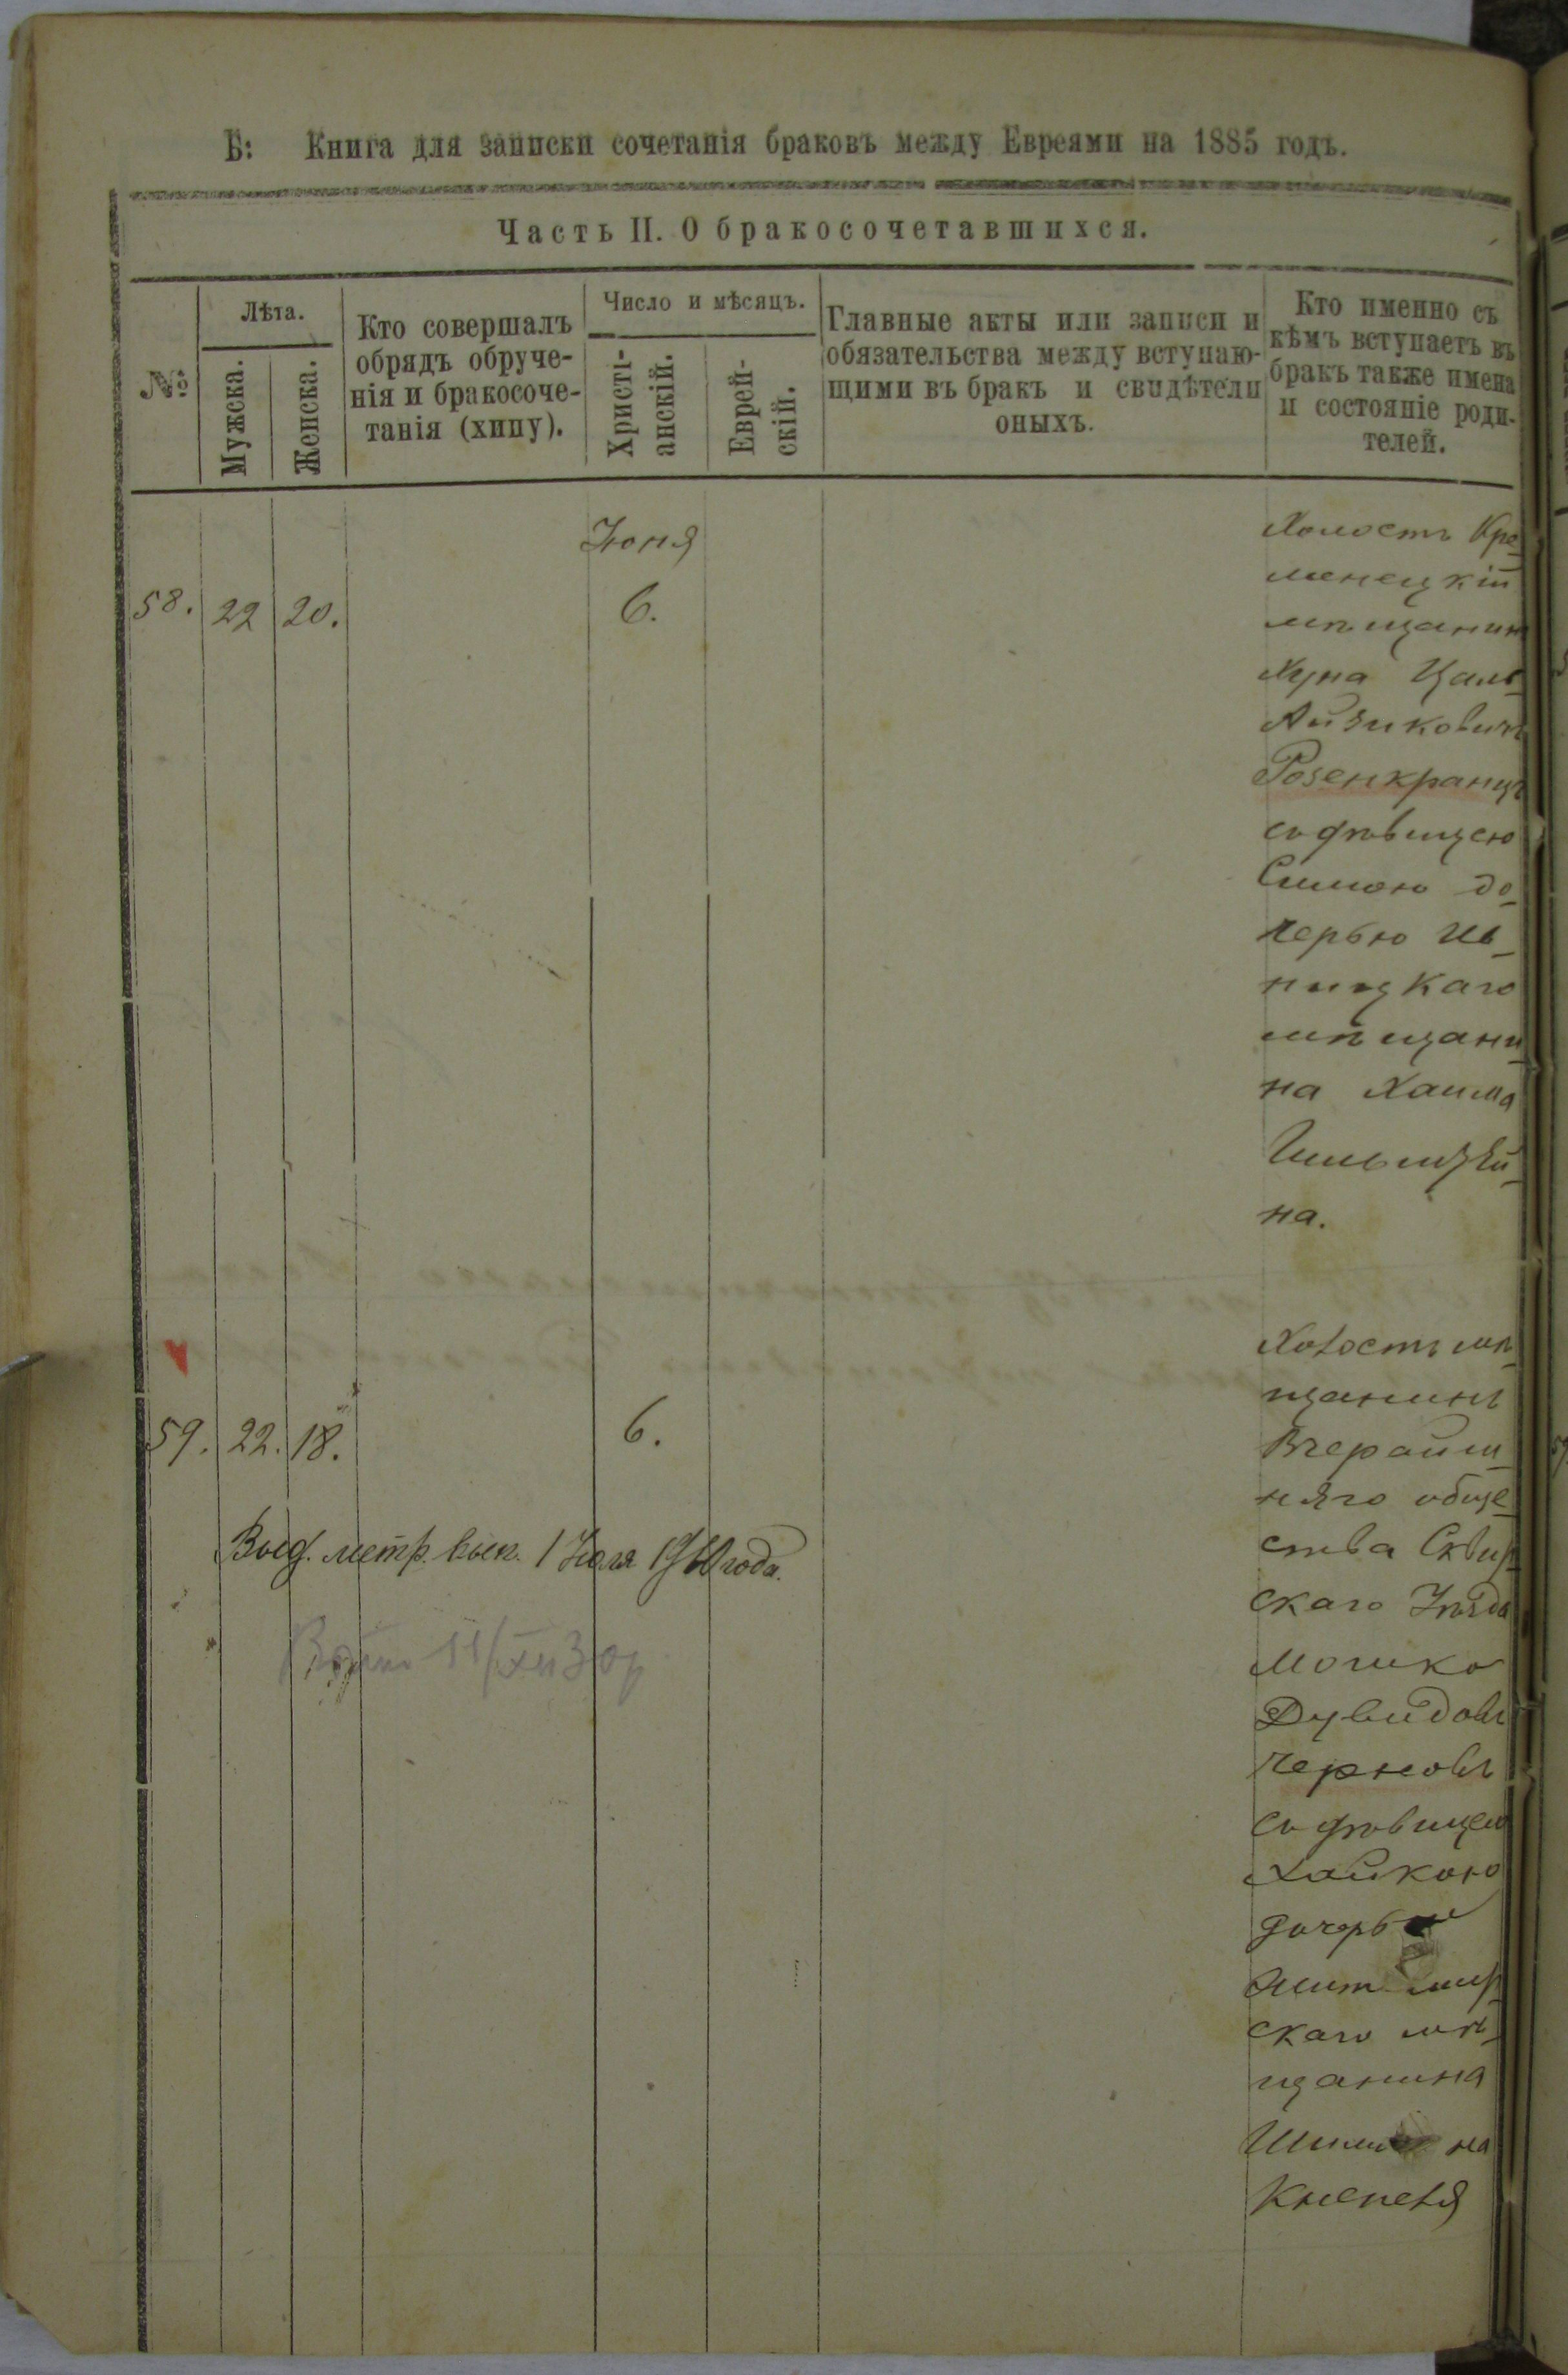 Б: Книга для записки сочетанія браковъ между Евреями на 1885 годъ.
Часть II. О бракосочетавшихся.
№
Лѣта.
Мужска.
Женска.
Кто совершалъ
обрядъ обруче-
нія и бракосоче-
танія (хипу).
Число и мѣсяцъ.
Христі-
анскій.
Еврей-
скій.
Главные акты или записи и
обязательства между вступаю-
щими въ бракъ и свидѣтели
оныхъ.
Кто именно съ
кѣмъ вступаетъ въ
бракъ также имена
и состояніе роди-
телей.
Іюня
58. 22 20. 6.
Холостъ Кре-
менецкій
мѣщанинъ
Хуна Цаль
Айзиковичъ
Розенкранцъ
съ дѣвицею
Симою до-
черью Ив-
ницкаго
мѣщани-
на Хаима
на.
59. 22. 18. 6.
Выд. метр. вып. 1 Іюля 1910 года.
Холостъ мѣ-
щанинъ
Вчерайш-
няго обще
ства Сквир
скаго Уѣзда
Мошко
Дувидовъ
Черновъ
съ дѣвицею
Хайкою
дочерью
Жит мир
скаго мѣ-
щанина
на